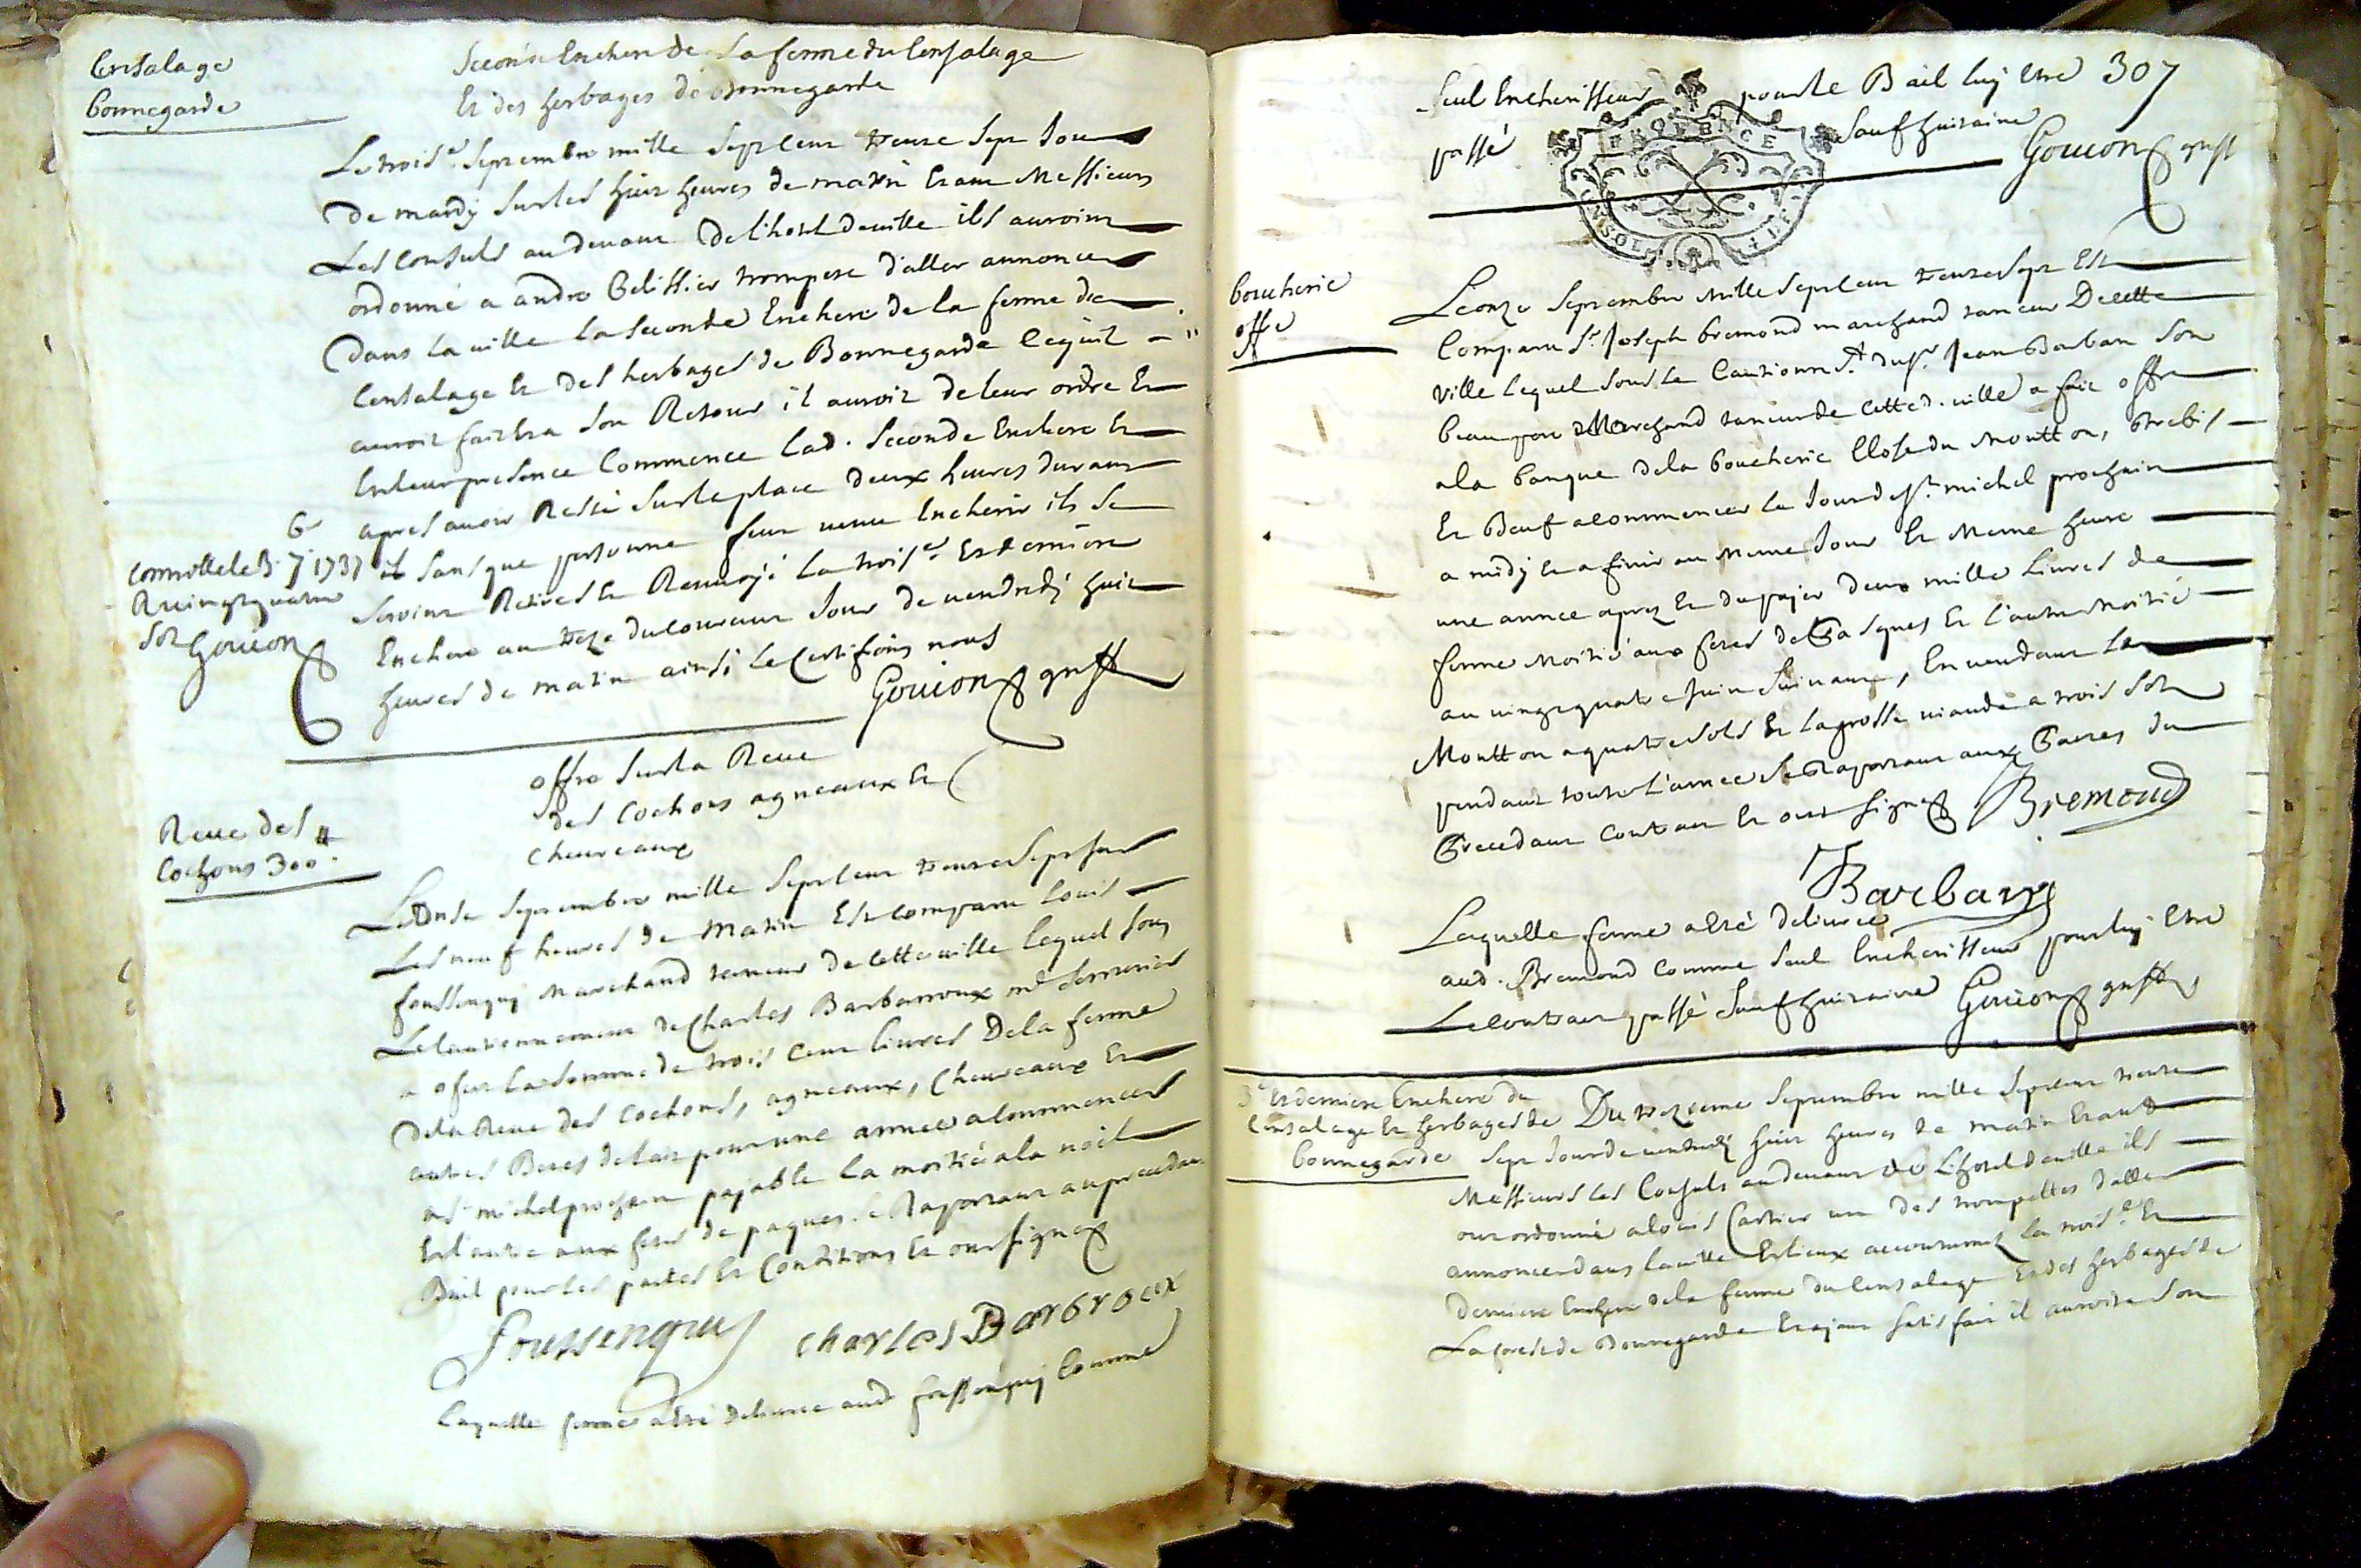 Censalage
bonnegarde
Seconde Enchere de La ferme du Censalage
Et des herbages de Bonnegarde
Le trois.e Septembre mille Sept Cent trente Sept Jour
De mardy Sur les huit heures de matin Etant Messieurs
Les Consuls au devant De l'hotel de ville ils auroint
ordonné a andre Pelissier trompete d'aller annoncer
Dans la ville La Seconde Enchere de la ferme du
Censalage Et des herbages de Bonnegarde Ce qu'il
auroit fait Et a Son Retour il auroit de leur ordre Et
En leur presence Commencé Lad. Seconde Enchere Et
apres avoir Resté Sur la place deux heures durant
Sans que personne Seur venu Encherir ils Se
Seroint Retires Et Renvoyé La trois.e Et derniere
Enchere au treze du Courant Jour de vendredy huit
heures de matin ainsi Le Certifions nous
Gouion greff
Controllé le 7 1737
R vingt quatre
Sols Gouion
offre Sur la Reve
des Cochons agneaux Et
Cheureaux
Reve des
Cochons 300 ₶
Le Onze Septembre mille Sept Cent trente Sept Sur
Les neuf heures de Matin Est Comparu Louis
foussenquy Marchand taneur de Cette ville Lequel Sous
Le Cautionnement de Charles Barbarroux m.d Serrurier
a ofert La Somme de trois Cent livres De la ferme
De la Reve des Cochons, agneaux, Cheureaux Et
autres Betes de lait pour une année a Commencer
a S.t michel prochain payable La moitié a la noël
Et l'autre aux fetes de paques. Se Raportant au precedant
Bail pour les pactes Et Conditions Et ont Signé
Foussenquy Charles Barbroux
Laquelle ferme a été delivrée aud foussenquy Comme
307
Seul Encherisseur pour le Bail luy Etre
passé Sauf huitaine
Gouion greff
PROVENCE
boucherie
offre
Le onze Septembre Mille Sept Cent trente Sept Est
Comparu S.r Joseph bremond marchand taneur De Cette
ville Lequel Sous Le Cautionn.t du S.r Jean Barban Son
beau pere Marchand taneur de Cette d. ville a fait offre
a la banque de la boucherie Close du Moutton, Brebis
Et Bœuf a Commencer Le Jour de S.t michel prochain
a midy Et a finir au Meme Jour Et Meme heure
une année aprez Et de payer Deux mille Livres de
ferme Moitié aux fetes de Pasques Et l'autre Moitié
au vingt quatre Juin Suivant, En vendant Le
Moutton a quatre Sols Et La grosse viande a trois Sols
pendant toute L'année Se Raportant aux Pactes du
Precedant Contract Et ont Signé Bremond
Barban
Laquelle ferme a été delivrée
aud. Bremond Comme Seul Encherisseur pour luy Etre
Le Contract passé Sauf huitaine Gouion greff
3.e Et derniere Enchere du
Censalage Et herbages de
bonnegarde
Du trezieme Septembre mille Sept Cent trente
Sept Jour de vendredy huit heures de matin Etant
Messieurs Les Consuls au devant de L'hotel de ville ils
ont ordonné a Loüis Cartier un Des trompettes d'aller
annoncer dans la ville Et Lieux accoutumez La trois.e Et
Derniere Enchere de la ferme du Censalage Et des herbages de
La forest de Bonnegarde Et ayant Satisfait il auroit a Son